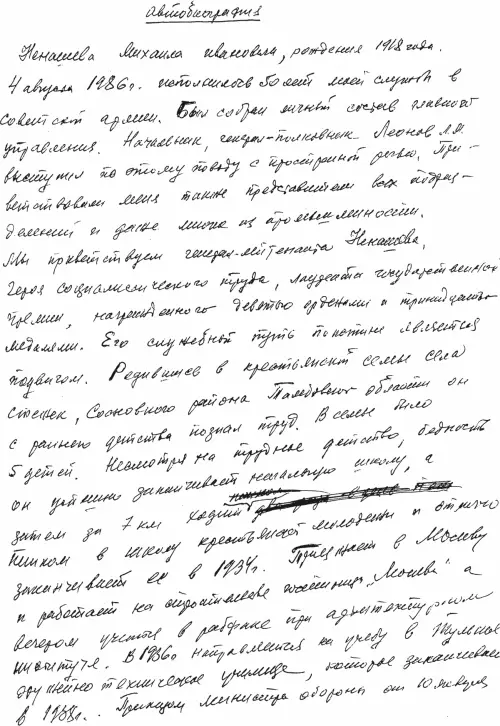 Автобиография
Ненашева Михаила Ивановича, рождения 1918 года.
4 августа 1986 г. исполнилось 50 лет моей службы в
Советской армии. Был собран личный состав главного
управления. Начальник, генерал-полковник Леонов Л.М.
выступил по этому поводу с пространной речью. При-
ветствовали меня также представители всех подраз-
делений и даже многие из промышленности.
Мы приветствуем генерал-лейтенанта Ненашева,
Героя социалистического труда, лауреата государственной
премии, награжденного девятью орденами и тринадцатью
медалями. Его служебный путь поистине является
подвигом. Родившись в крестьянской семье села
Стежек, Сосновского района Тамбовской области он
с раннего детства познал труд. В семье было
5 детей. Несмотря на трудное детство, бедность
он успешно заканчивает начальную школу, а
затем за 7 км ходит
пешком в школу крестьянской молодежи и отлично
заканчивает ее в 1934г. Приезжает в Москву
и работает на строительстве гостиницы „Москва" а
вечером учится в рабфаке при архитектурном
институте. В 1936г направляется на учебу в Тульское
оружейно техническое училище, которое заканчивает
в 1938г. Приказом министра обороны от 10 января